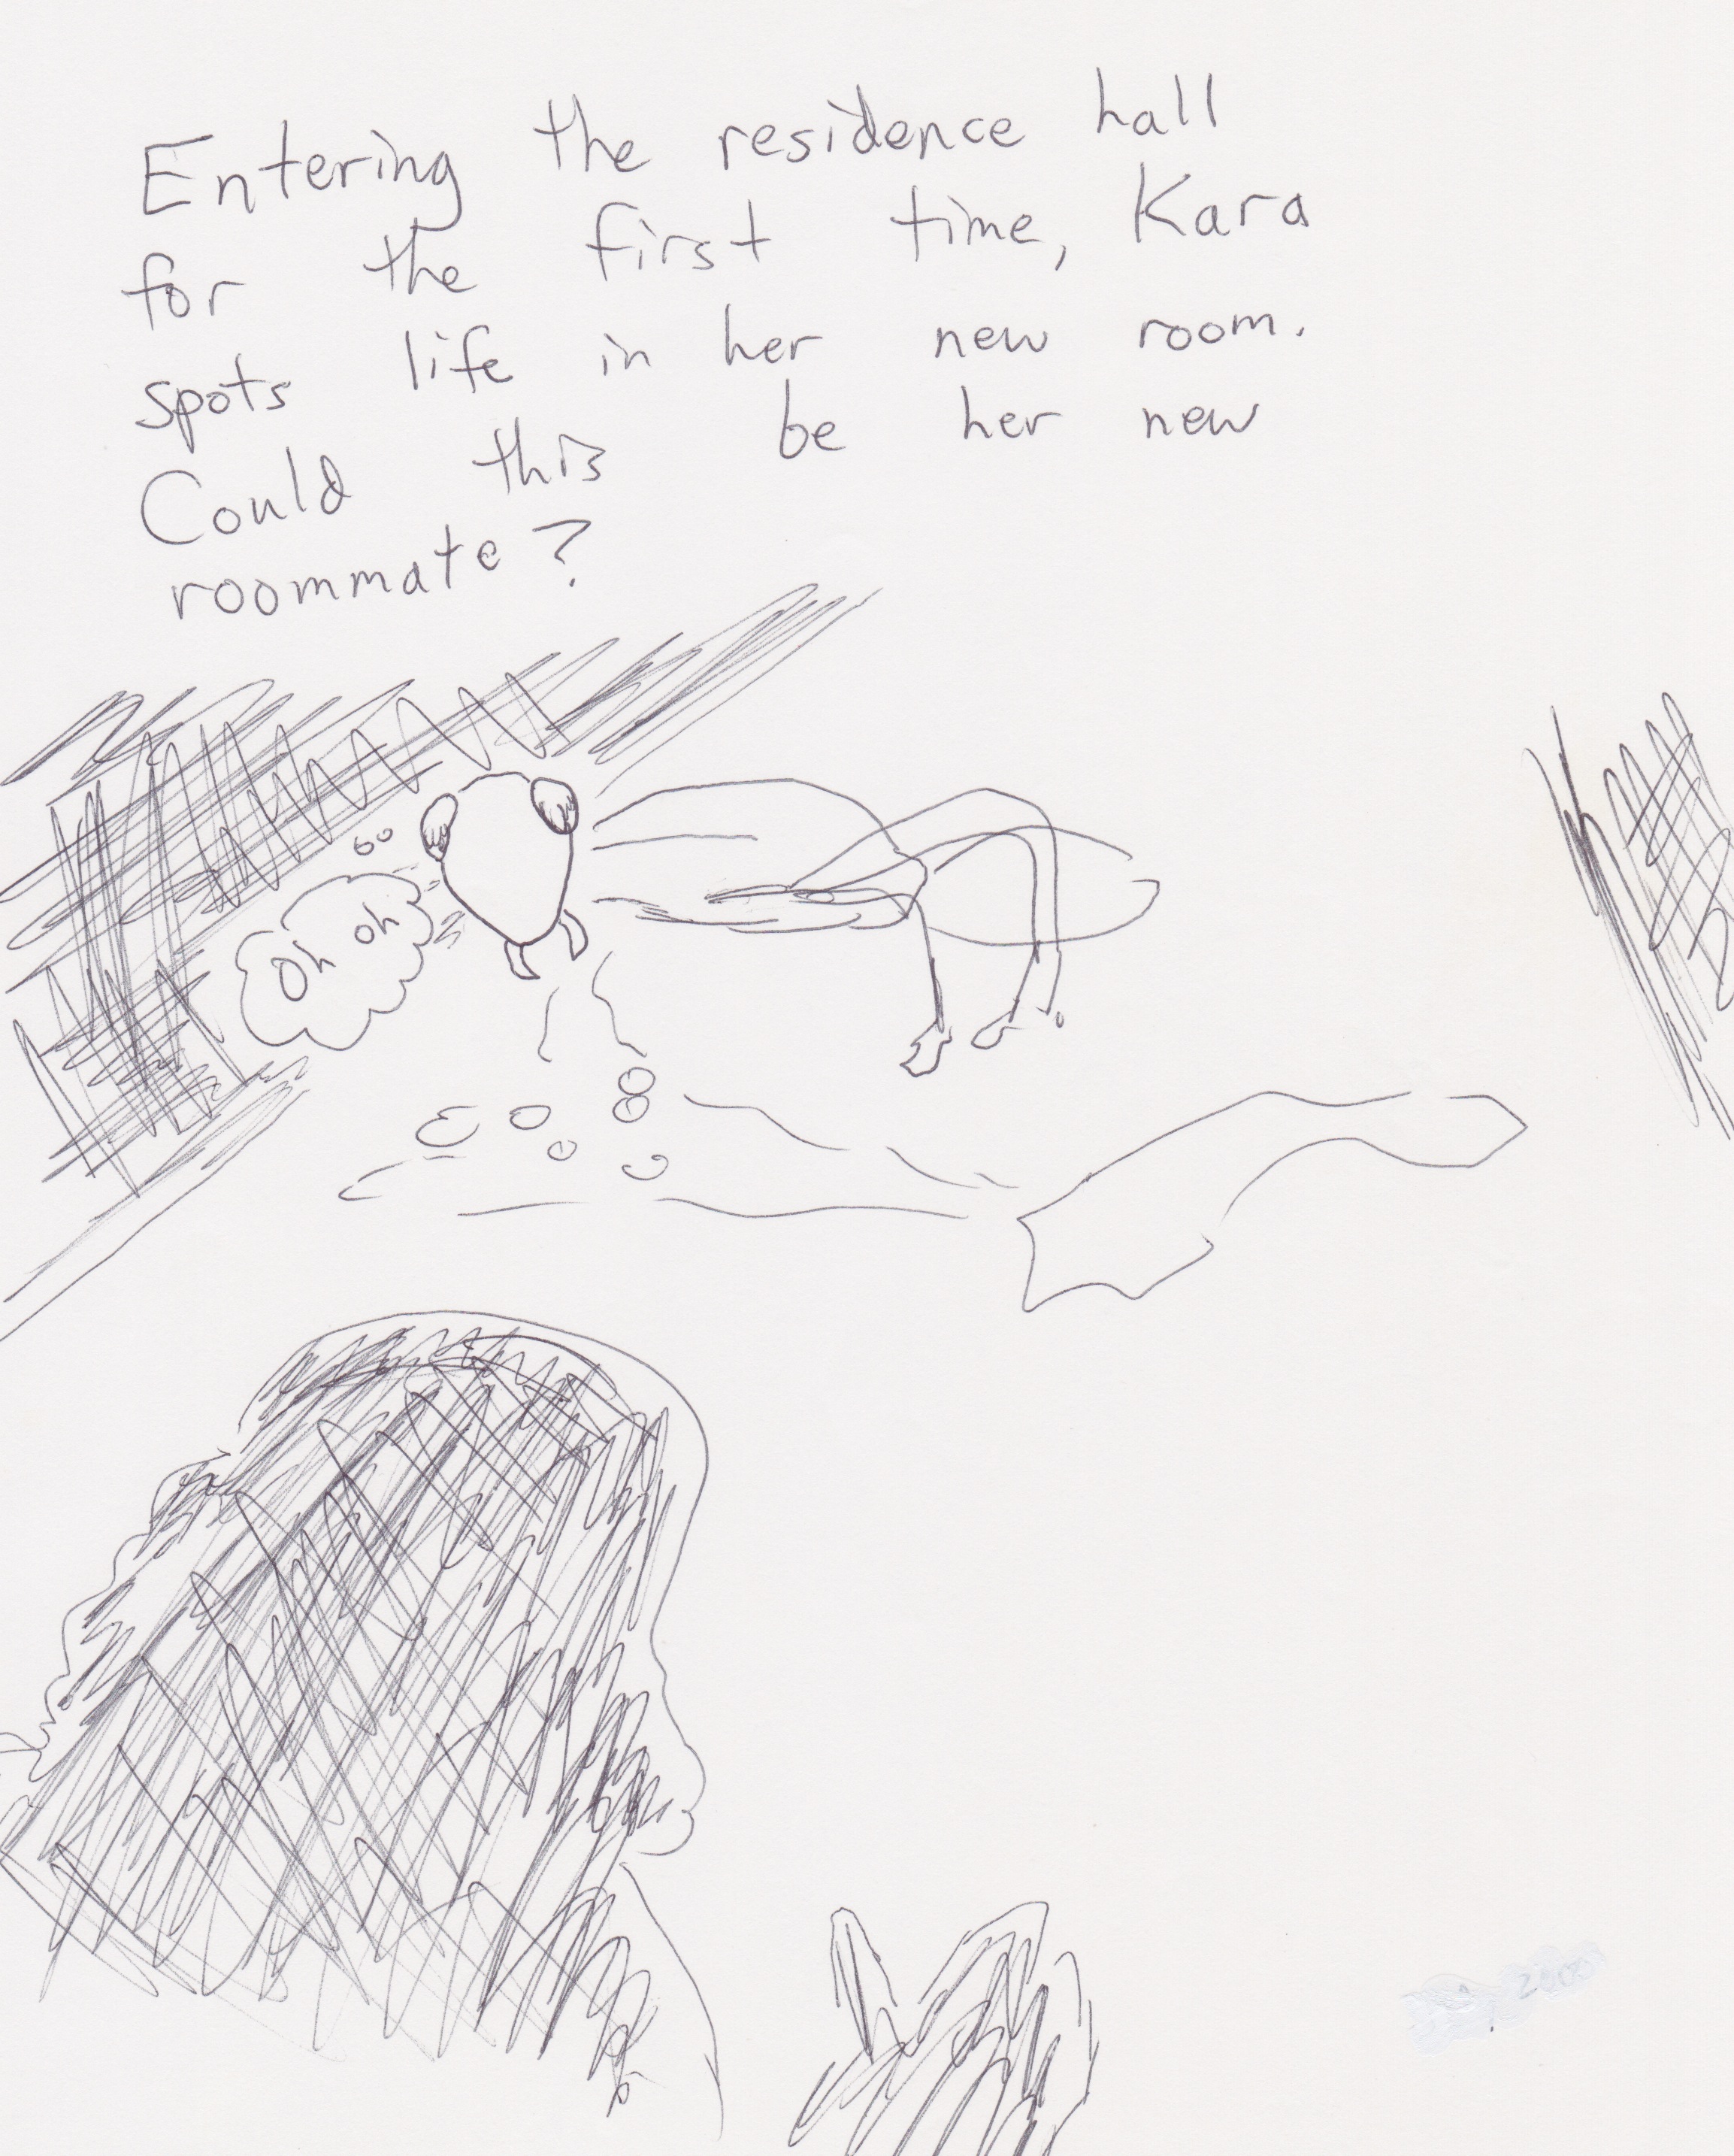 Entering the residence hall
for the first time, Kara
spots life in her new room.
Could this be her new
roommate?
Oh oh
2000